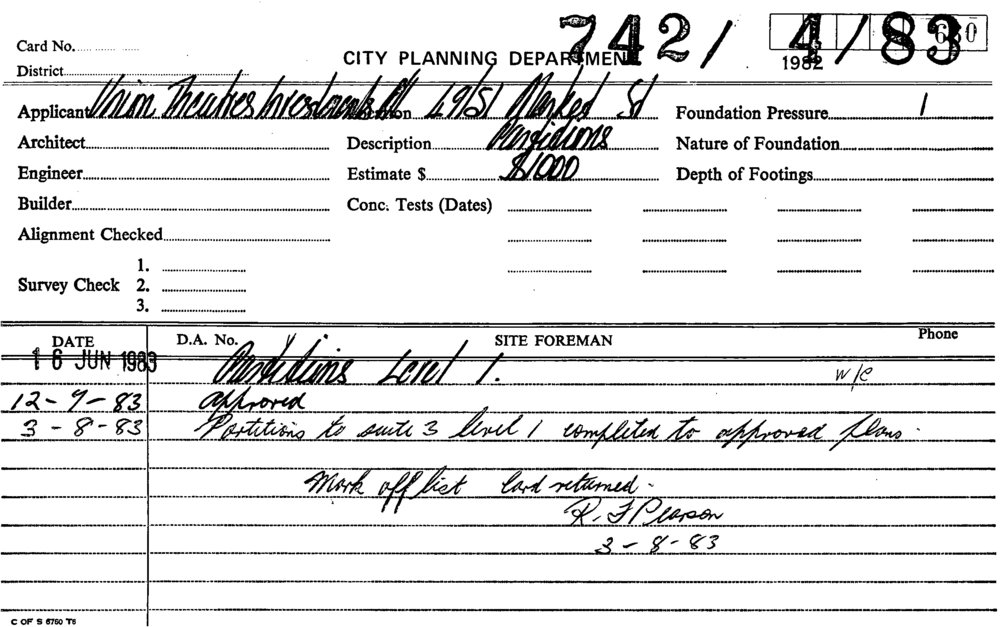 Card No. 7421 4/83 60
CITY PLANNING DEPARTMENT 1982
District
Applicant Union Theatres Investments Location 49/51 Market St Foundation Pressure 1
Architect Description Partitions Nature of Foundation
Engineer Estimate $ $1000 Depth of Footings
Builder Conc. Tests (Dates)
Alignment Checked
1.
Survey Check 2.
3.
DATE D.A. No. SITE FOREMAN Phone
16 JUN 1983 Partitions Level 1. w/c
12-7-83 approved
3-8-83 Partitions to suite 3 level 1 completed to approved plans.
Mark off list Card returned.
R. F Pearson
3-8-83
C OF S 6760 T6